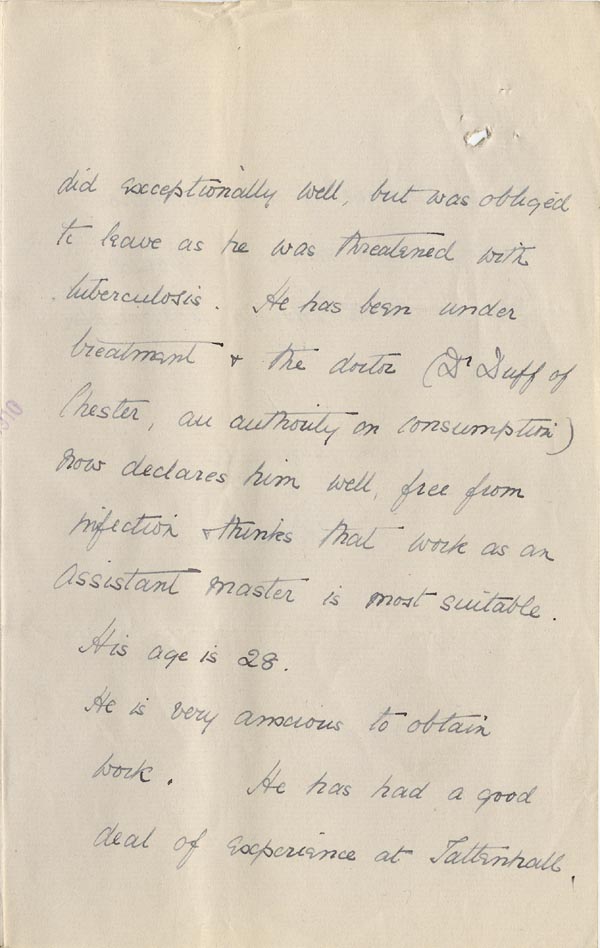 did exceptionally well, but was obliged
to leave as he was threatened with
tuberculosis. He has been under
treatment & the doctor (Dr Duff of
Chester, an authority on consumption)
now declares him well, free from
infection & thinks that work as an
Assistant master is most suitable.
His age is 28.
He is very anxious to obtain
work. He has had a good
deal of experience at Tattenhall,